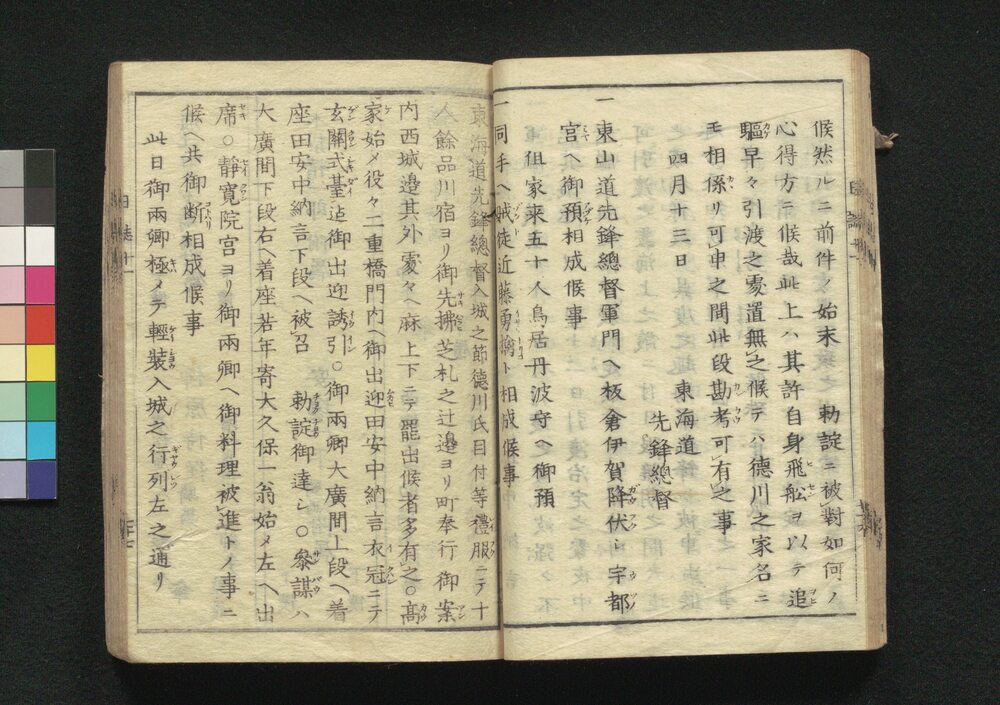 候然ルニ前件ノ始末 勅諚ニ被對如何ノ
心得方ニ候哉此上ハ其許自身飛舩ヲ以テ追
驅早々引渡之處置無之候テハ德川之家名ニ
モ相係リ可申之間此段勘考可有之事
四月十三日 東海道
先鋒總督
一
東山道先鋒總督軍門ヘ板倉伊賀降伏シ宇都
宮ヘ御預相成候事
但家来五十人鳥居丹波守ヘ御預
一同手ヘ賊徒近藤勇擒ト相成候事
東海道先鋒總督入城之節德川氏目付等禮服ニテ十
人餘品川宿ヨリ御先拂芝札之辻邉ヨリ町奉行御案
内西城邉其外處々ヘ麻上下ニテ罷出候者多有之○髙
家始メ役々二重橋門内ヘ御出迎田安中納言衣冠ニテ
玄關式臺迠御出迎誘引○御兩卿大廣間上段ヘ着
座田安中納言下段ヘ被召 勅諚御達シ○參謀ハ
大廣間下段右ヘ着座若年寄大久保一翁始メ左ヘ出
席○靜寬院宮ヨリ御兩卿ヘ御料理被進トノ事ニ
候ヘ共御断相成候事
此日御兩卿極メテ輕裝入城之行列左之通リ